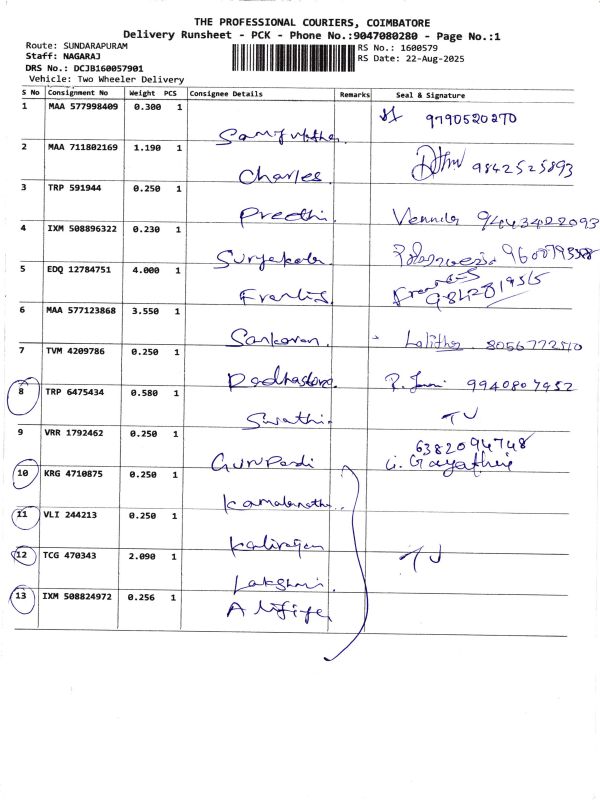 THE PROFESSIONAL COURIERS, COIMBATORE
Delivery Runsheet - PCK - Phone No.:9047080280 - Page No.:1
Route: SUNDARAPURAM RS No.: 1600579
Staff: NAGARAJ RS Date: 22-Aug-2025
DRS No.: DCJB160057901
Vehicle: Two Wheeler Delivery
S No Consignment No Weight PCS Consignee Details Remarks Seal & Signature
1 MAA 577998409 0.300 1 9790520270
2 MAA 711802169 1.190 1 Charles 9842525893
3 TRP 591944 0.250 1 Preethi. Vennila 9443422093
4 IXM 508896322 0.230 1 Suryakala
5 EDQ 12784751 4.000 1 Francis
6 MAA 577123868 3.550 1 Sankaran. Lalitha 8056772510
7 TVM 4209786 0.250 1 9940807952
8 TRP 6475434 0.580 1 Swathi.
9 VRR 1792462 0.250 1 Gurupandi 6382094748
G. Gayathri
10 KRG 4710875 0.250 1 Kamalanathan.
11 VLI 244213 0.250 1 Kalirajan
12 TCG 470343 2.090 1 Lakshmi.
13 IXM 508824972 0.256 1